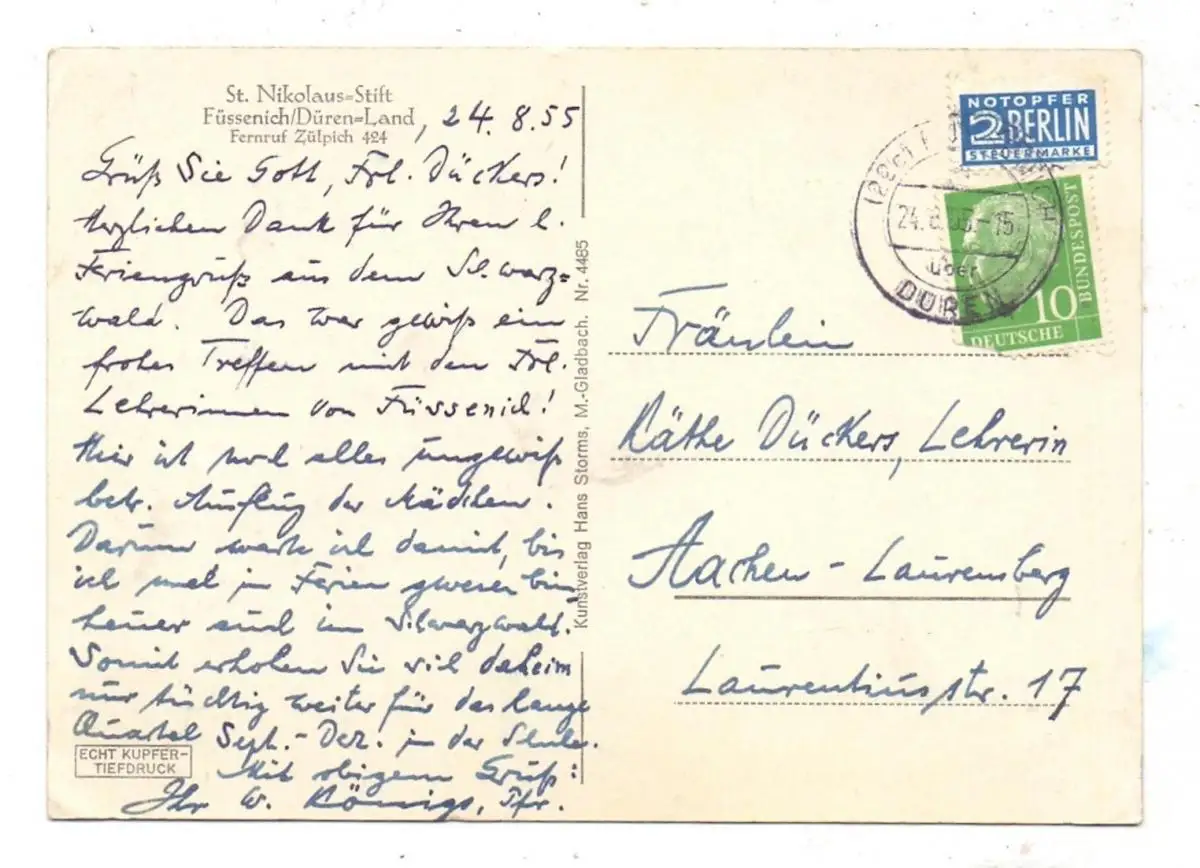 St. Nikolaus=Stift
Füssenich/Düren=Land
Fernruf Zülpich 424
, 24. 8. 55
Grüß Sie Gott, Frl. Dückers!
Herzlichen Dank für Ihren l.
Feriengruß aus dem Schwarz=
wald. Das war gewiß ein
frohes Treffen mit den Frl.
Lehrerinnen von Füssenich!
Hier ist noch alles ungewiß
betr. Ausflug der Mädchen.
Darum warte ich damit, bis
ich mal in Ferien gwesen bin,
heuer auch im Schwarzwald.
Somit erholen Sie sich daheim
nur tüchtig weiter für das lange
Quartal Sept.-Dez. in der Schule.
Mit obigem Gruß:
Ihr W. Königs, Pfr.
ECHT KUPFER-
TIEFDRUCK
Kunstverlag Hans Storms, M.-Gladbach. Nr. 4485
NOTOPFER
2 BERLIN
STEUERMARKE
24. 8. 55.-15
über
DÜREN
10
DEUTSCHE
BUNDESPOST
Fräulein
Käthe Dückers, Lehrerin
Aachen - Laurensberg
Laurentiusstr. 17